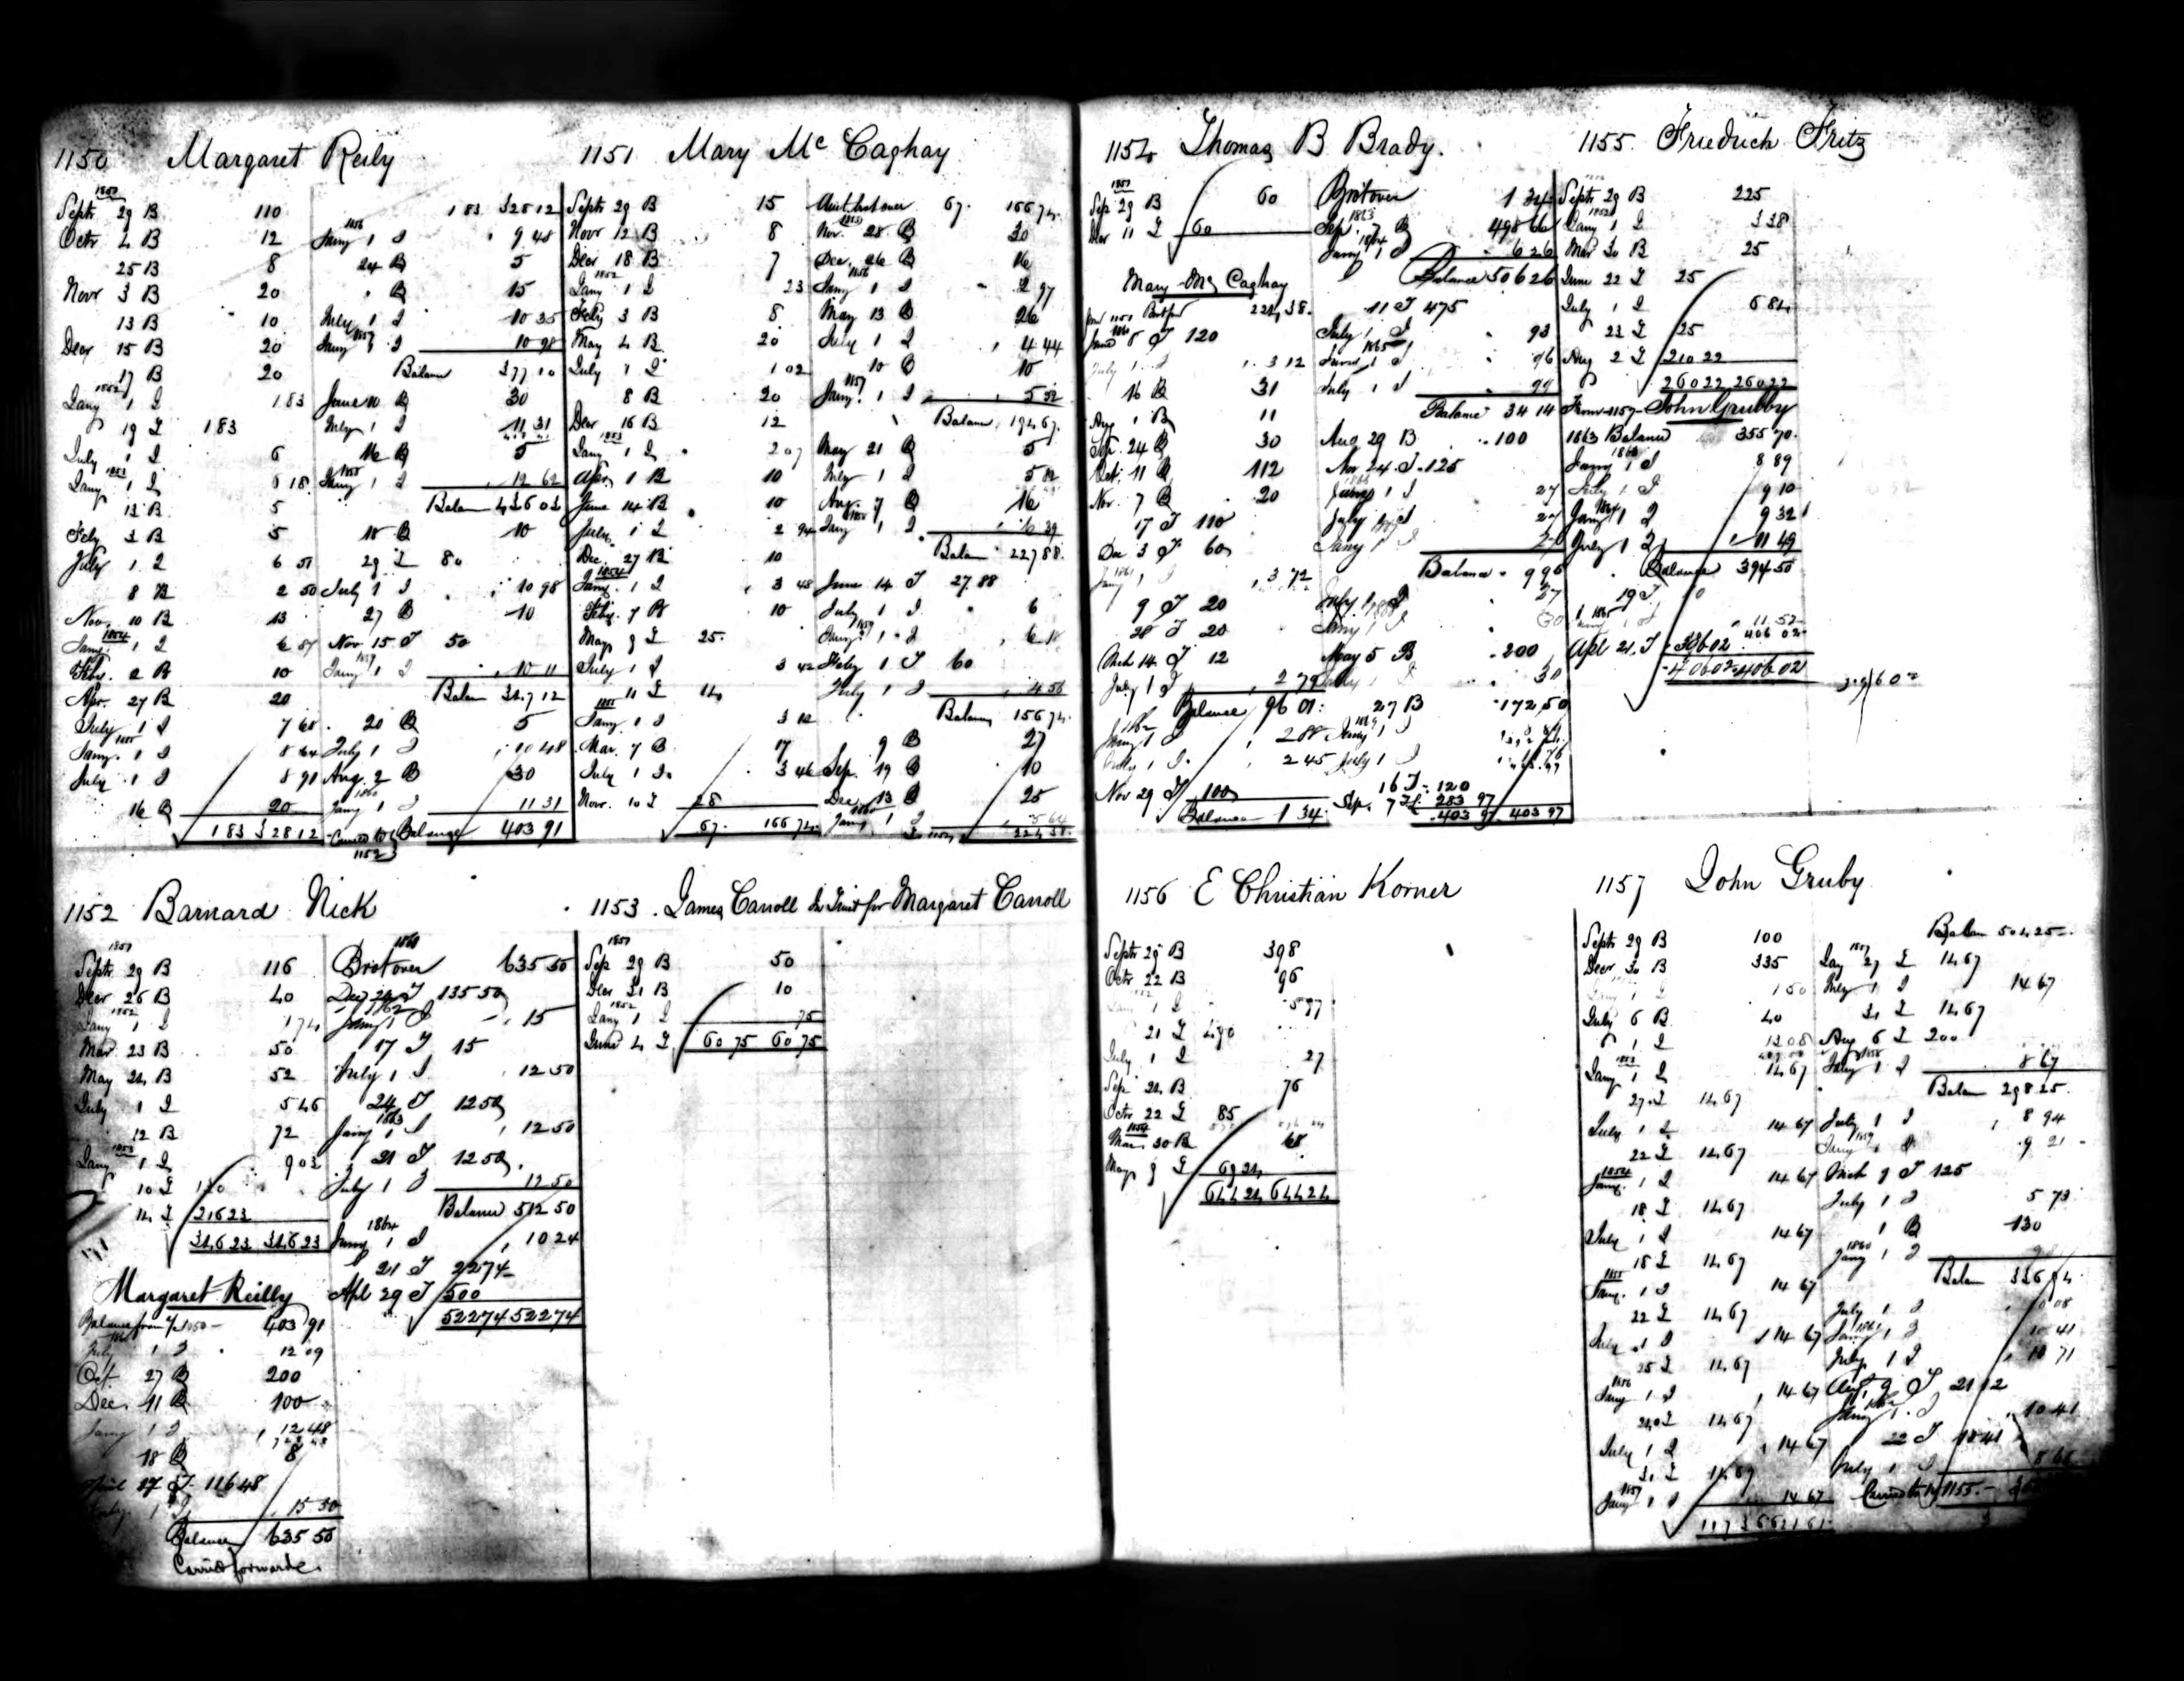 1150 Margaret Reily
1851
Septr 29 B 110
Octr 4 B 12
25 B 8
Novr 3 B 20
13 B 10
Decr 15 B 20
17 B 20
1852
Jany 1 I 1 83
19 T 1 83
July 1 I 6
1853
Jany 1 I 6 18
13 B 5
Feby 3 B 5
July 1 I 6 51
8 B 2 50
Nov. 10 B 13
1854
Jany. 1 I 6 87
Feb. 2 B 10
Apr. 27 B 20
July 1 I 7 68
1855
Jany. 1 I 8 64
July 1 I 8 91
16 B 20
1 83 328 12
1 83 328 12
1856
Jany 1 I 9 48
24 B 5
" B 15
July 1 I 10 35
1857
Jany 1 I 10 98
Balance 377 10
June 10 B 30
July 1 I 11 31
16 B 5
1858
Jany 1 I 12 62
Balan 436 03
18 B 10
29 T 80
July 1 I 10 98
27 B 10
Nov. 15 T 50
1859
Jany 1 I 10 11
Balan 347 12
20 B 5
July 1 I 10 48
Aug. 2 B 30
1860
Jany 1 I 11 31
Carried to Balance 403 91
1152
1151 Mary Mc Caghay
Septr 29 B 15
Novr 12 B 8
Decr 18 B 7
1852
Jany 1 I 23
Feby 3 B 8
May 4 B 20
July 1 I 1 02
8 B 20
Decr 16 B 12
1853
Jany 1 I 2 07
Apr. 1 B 10
June 14 B 10
July 1 I 2 94
Dec. 27 B 10
1854
Jany. 1 I 3 48
Feb. 7 B 10
May 9 T 25
July 1 I 3 42
11 T 14
1855
Jany. 1 I 3 12
Mar. 7 B 17
July 1 I 3 46
Nov. 10 T 28
67. 166 74
67. 166 74
Nov. 28 B 30
Dec. 26 B 16
1856
Jany 1 I 2 97
May 13 B 26
July 1 I 4 44
10 B 10
1857
Jany. 1 I 5 52
Balan 194 67
May 21 B 5
July 1 I 5 82
Aug. 7 B 16
1858
Jany 1 I 6 39
Balan 227 88
June 14 T 27.88
July 1 I 6
1859
Jany 1 I 6 18
Feby 1 T 60
July 1 I 4 56
Balan 156 74
9 B 27
Sep. 19 B 10
Dec. 13 B 25
1860
Jany 1 I 5 64
1154 224 38
1152 Barnard Nick
1851
Septr 29 B 116
Decr 26 B 40
1852
Jany 1 I 1 74
Mar 23 B 50
May 24 B 52
July 1 I 5 46
12 B 72
1853
Jany 1 I 9 03
10 T 130
14 T 216 23
346 23 346 23
Margaret Reilly
Balance from 403 91
July 1 I 12 09
Oct 27 B 200
Dec. 11 B 100
Jany 1 I 12 48
18 B 8
April 17 T 116 48
July 1 I 15 50
Balance 635 50
Carried forward
Brot over 635 50
Dec 24 T 135 50
1862
Jany 1 I 15
17 T 15
July 1 I 12 50
24 T 12 50
1863
Jany 1 I 12 50
21 T 12 50
July 1 I 12 50
Balance 512 50
1864
Jany 1 I 10 24
21 T 22 74
Apl 29 T 500
522 74 522 74
1153. James Carroll In Trust for Margaret Carroll
1851
Sep 29 B 50
Decr 31 B 10
1852
Jany 1 I 75
June 4 T 60 75 60 75
1154 Thomas B Brady.
1851
Sep 29 B 60
Decr 11 T 60
Mary Mc Caghay
224 38
1860
June 8 T 120
July 1 I 3 12
16 B 31
Aug 1 B 11
Sep. 24 B 30
Oct. 11 B 112
Nov. 7 B 20
17 T 110
Dec 3 T 60
1861
Jany 1 I 3 72
9 T 20
28 T 20
Mch 14 T 12
July 1 I 2 79
Balance 96 01
1862
Jany 1 I 2 88
July 1 I 2 45
Nov 29 T 100
Balance 1 34
Brot over 1 34
1863
Sep. 7 B 498 66
1864
Jany 1 I 6 26
Balance 506 26
11 T 475
July 1 I 93
1865
Jany 1 I 96
July 1 I 99
Balance 34 14
Aug 29 B 100
Nov 24 T 125
Jany 1 I 27
July 1 I 27
Jany 1 I 27
Balance 9 95
July 1 I 27
Jany 1 I 30
May 5 B 200
July 1 I 30
27 B 172.50
16 T 120
Sep. 7 T 283 97
403 97 403 97
1155. Friedrich Fritz
Septr 29 B 225
1852
Jany 1 I 3 38
Mar 30 B 25
June 22 T 25
July 1 I 6 84
23 T 25
Aug 2 T 210 22
260 22 260 22
From 1157 John Grubby
1863 Balance 355 70
Jany 1 I 8 89
July 1 I 9 10
1864
Jany 1 I 9 32
July 1 I 11 49
Balance 394 50
19 T
1865
Jany 1 I 11 52
406 02
Apl 21 T 396 02
406 02 406 02
1156 E Christian Korner
Septr 29 B 398
Octr 22 B 96
Jany 1 I 5 97
21 T 490
July 1 I 27
Sep 24 B 76
Octr 22 T 85
1854
Mar. 30 B 68
May 9 T 69 24
644 24 644 24
1157 John Gruby
Septr 29 B 100
Decr 30 B 335
Jany 1 I 1 50
July 6 B 40
1 I 13 08
1853
Jany 1 I 14 67
27 T 14.67
July 1 I 14 67
22 T 14.67
1854
Jany. 1 I 14 67
18 T 14.67
July 1 I 14 67
18 T 14.67
1855
Jany. 1 I 14 67
22 T 14.67
July 1 I 14 67
25 T 14.67
1856
Jany 1 I 14 67
24 T 14.67
July 1 I 14 67
31 T 14 67
1857
Jany 1 I 14 67
Balan 504 25
1857
Jany 27 T 14 67
July 1 I 14 67
31 T 14 67
Aug 6 T 200
1858
Jany 1 I 8 67
Balan 298 25
July 1 I 8 94
1859
Jany 1 I 9 21
Mch 9 T 125
July 1 I 5 73
1 B 130
1860
Jany 1 I
Balan 336
July 1 I 10 08
1861
Jany 1 I 10 41
July 1 I 10 71
Aug. 9 T 21 12
1862
Jany 1 I 10 41
22 T 10 41
July 1 I
Carried to 1155